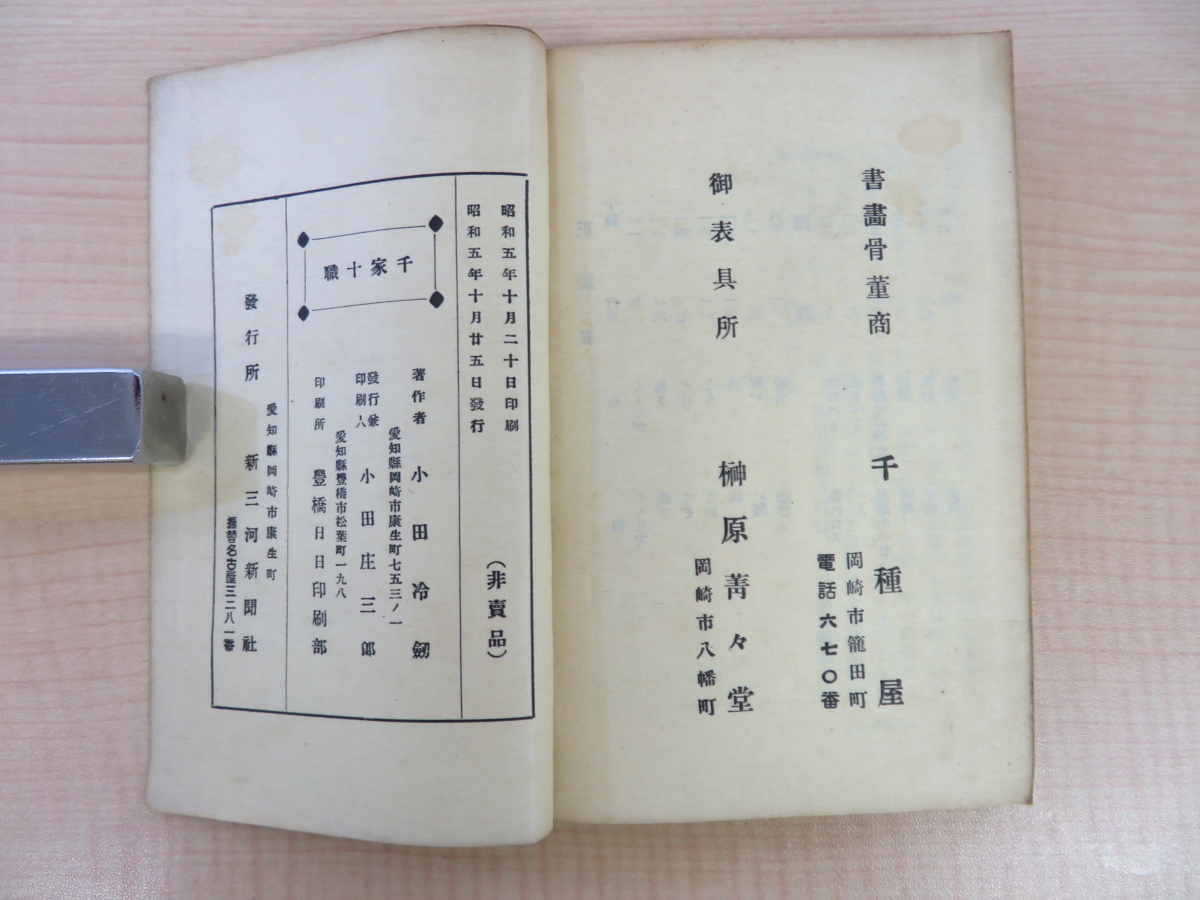 書畫骨董商
千種屋
岡崎市籠田町
電話六七〇番
御表具所
榊原菁々堂
岡崎市八幡町
昭和五年十月二十日印刷
昭和五年十月廿五日發行
(非賣品)
千家十職
著作者 小田冷劒
愛知縣岡崎市康生町七五三ノ一
發行兼印刷人 小田庄三郎
愛知縣豐橋市松葉町一九八
印刷所 豐橋日日印刷部
發行所
愛知縣岡崎市康生町
新三河新聞社
振替名古屋三二八一番